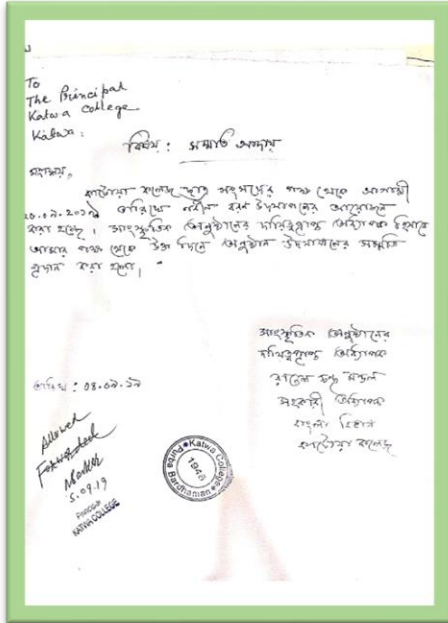 To
The Principal
Katwa College
Katwa.
বিষয় : সম্মতি আদায়
মহাশয়,
কাটোয়া কলেজ ছাত্র সংসদের পক্ষ থেকে আগামী
তারিখে নবীন বরণ উদযাপনের আয়োজন
করা হচ্ছে। সাংস্কৃতিক অনুষ্ঠানের দায়িত্বপ্রাপ্ত অধ্যাপক হিসাবে
আমার পক্ষ থেকে উক্ত দিনে অনুষ্ঠান উদযাপনের সম্মতি
প্রদান করা হলো।
সাংস্কৃতিক অনুষ্ঠানের
দায়িত্বপ্রাপ্ত অধ্যাপক
চন্দ্র মন্ডল
সহকারী অধ্যাপক
বাংলা বিভাগ
কাটোয়া কলেজ
তারিখ : ০৪.০৯.১৯
Allowed
Forwarded
5.09.19
KATWA COLLEGE
Katwa College
Purba Bardhaman
1948